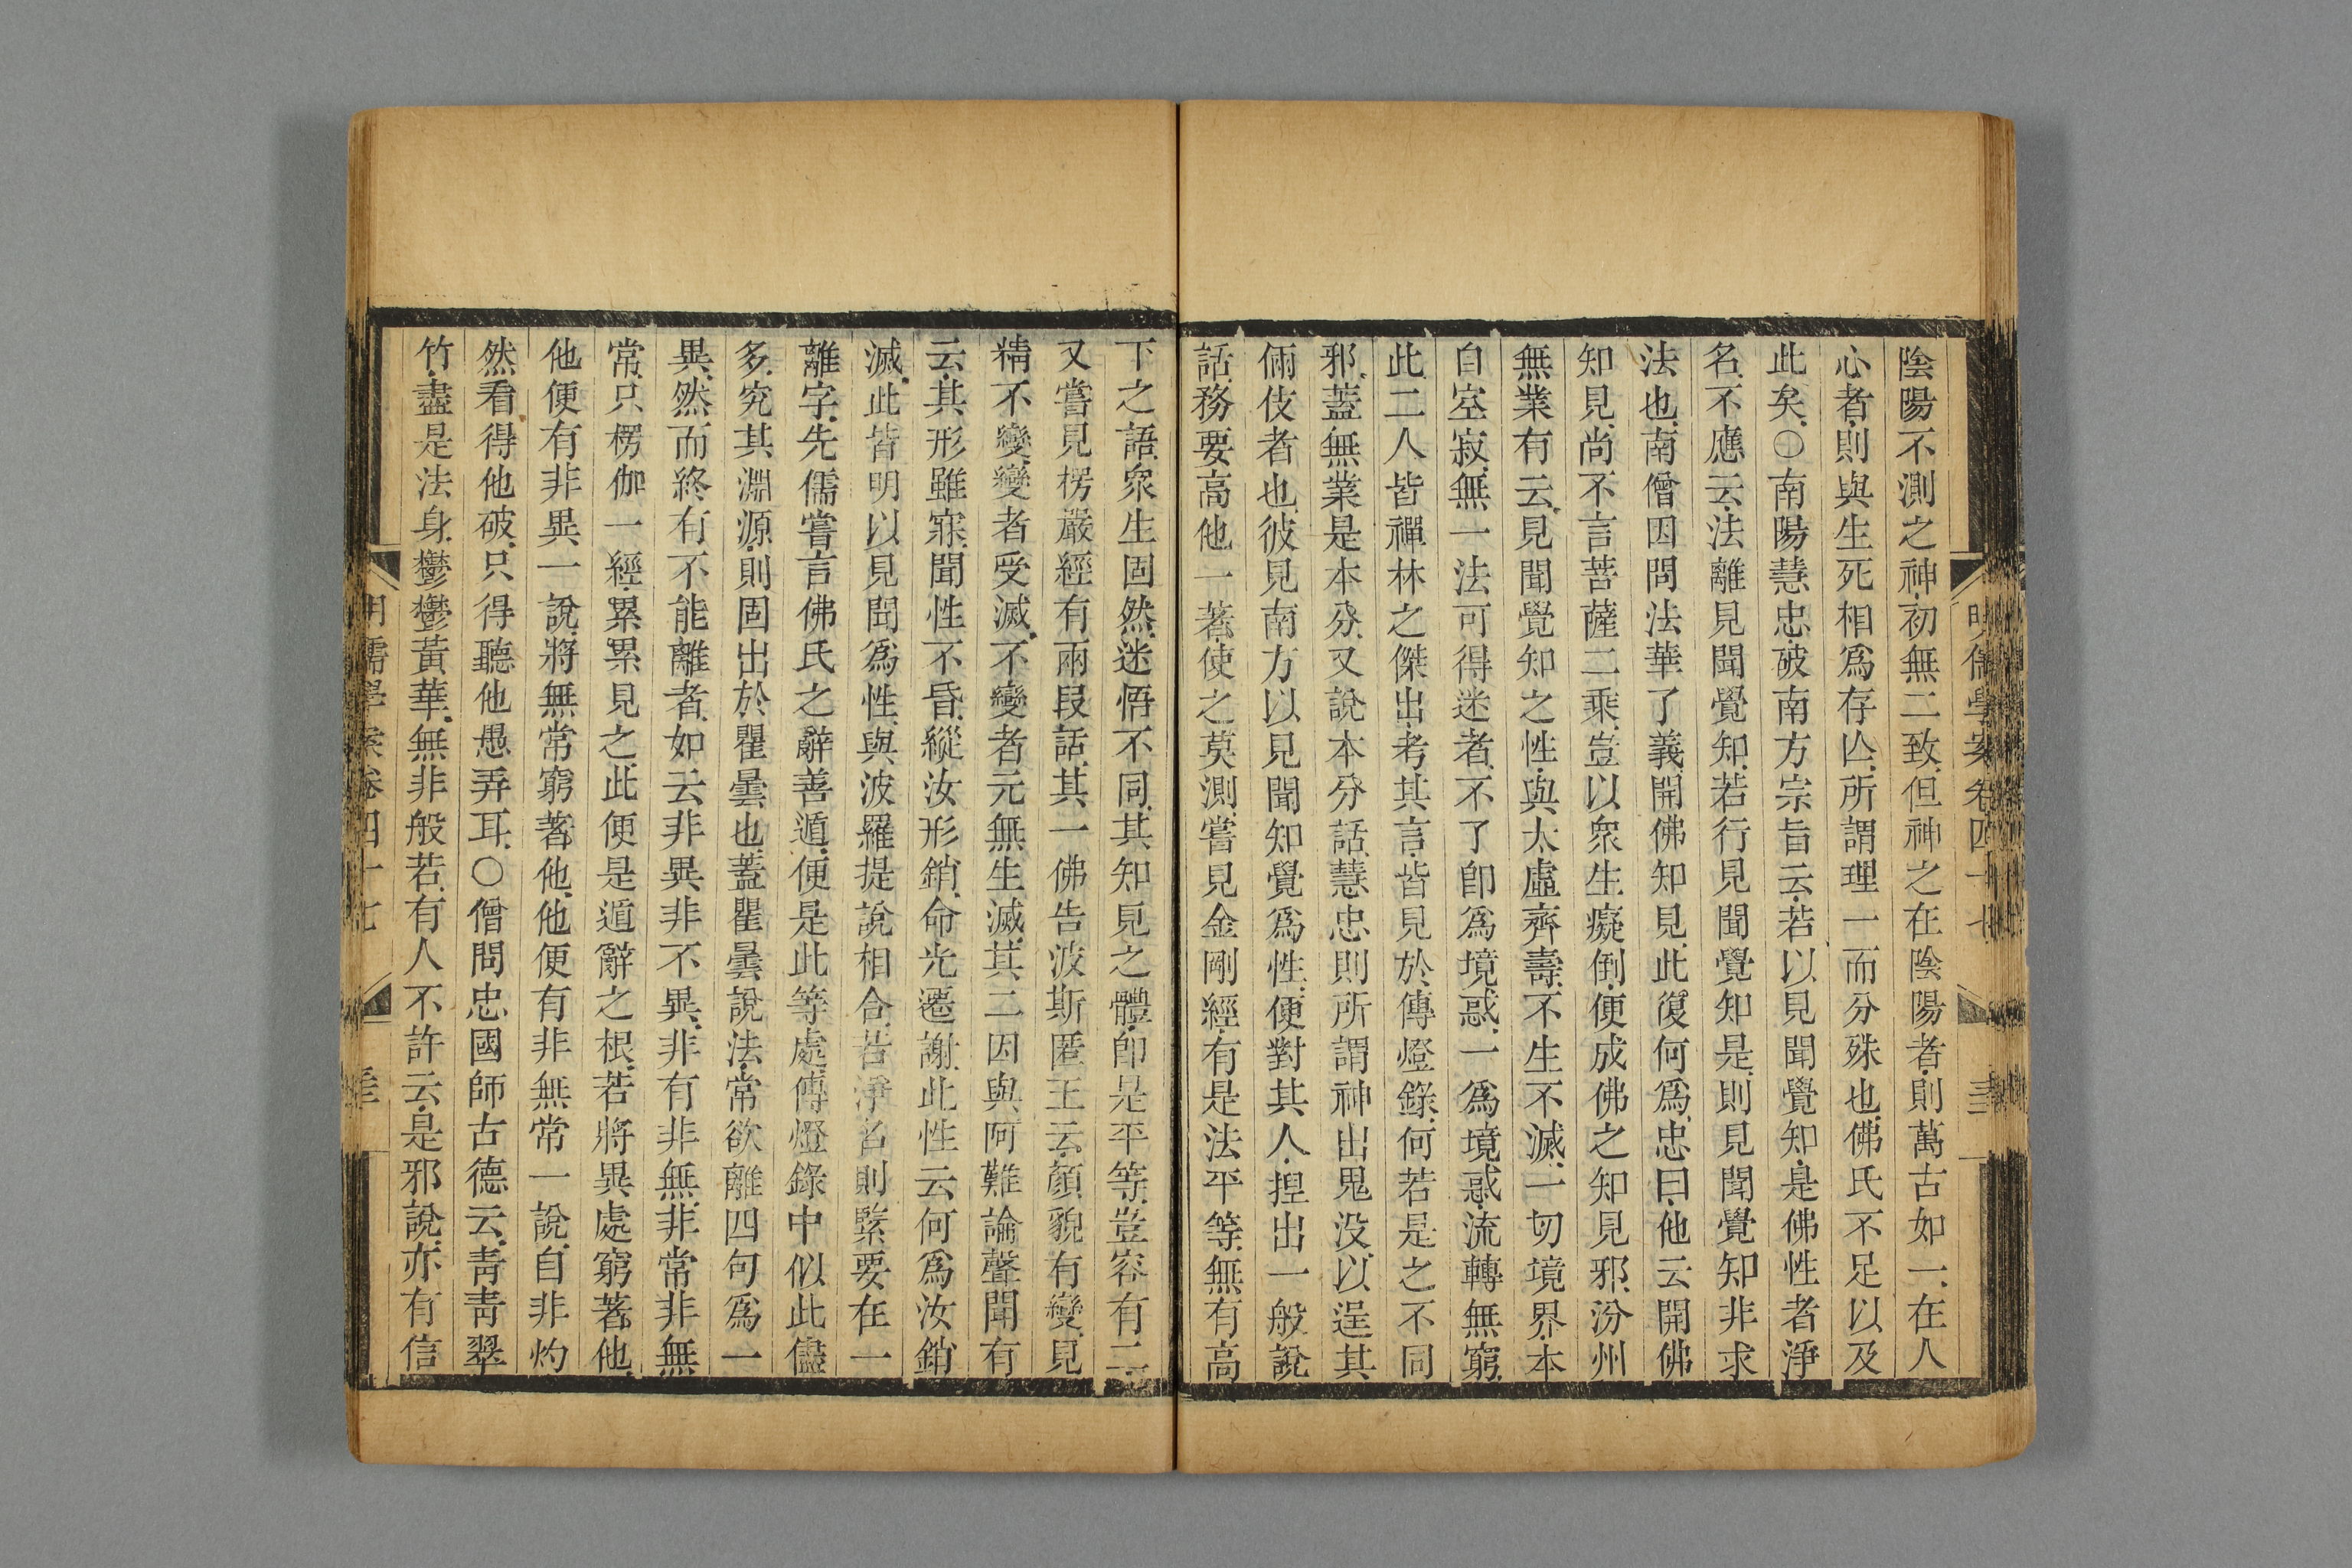 陰陽不測之神初無二致但神之在陰陽者則萬古如一在人
心者則與生死相為存亾所謂理一而分殊也佛氏不足以及
此矣〇南陽慧忠破南方宗旨云若以見聞覺知是佛性者淨
名不應云法離見聞覺知若行見聞覺知是則見聞覺知非求
法也南僧因問法華了義開佛知見此復何為忠曰他云開佛
知見尚不言菩薩二乘豈以衆生癡倒便成佛之知見邪汾州
無業有云見聞覺知之性與太虛齊壽不生不滅一切境界本
自空寂無一法可得迷者不了卽為境惑一為境惑流轉無窮
此二人皆禪林之傑出考其言皆見於傳燈錄何若是之不同
邪蓋無業是本分又說本分話慧忠則所謂神出鬼没以逞其
倆伎者也彼見南方以見聞知覺為性便對其人揑出一般說
話務要高他一著使之莫測嘗見金剛經有是法平等無有高
下之語衆生固然迷悟不同其知見之體卽是平等豈容有二
又嘗見楞嚴經有兩段話其一佛告波斯匿王云顏貌有變見
精不變變者受滅不變者元無生滅其二因與阿難論聲聞有
云其形雖寐聞性不昏縱汝形銷命光遷謝此性云何為汝銷
滅此皆明以見聞為性與波羅提說相合若淨名則緊要在一
離字先儒嘗言佛氏之辭善遁便是此等處傳燈錄中似此儘
多究其淵源則固出於瞿曇也蓋瞿曇說法常欲離四句爲一
異然而終有不能離者如云非異非不異非有非無非常非無
常只楞伽一經累累見之此便是遁辭之根若將異處窮著他
他便有非異一說將無常窮著他他便有非無常一說自非灼
然看得他破只得聽他愚弄耳〇僧問忠國師古德云靑靑翠
竹盡是法身鬱鬱黃華無非般若有人不許云是邪說亦有信
明儒學案卷四十七